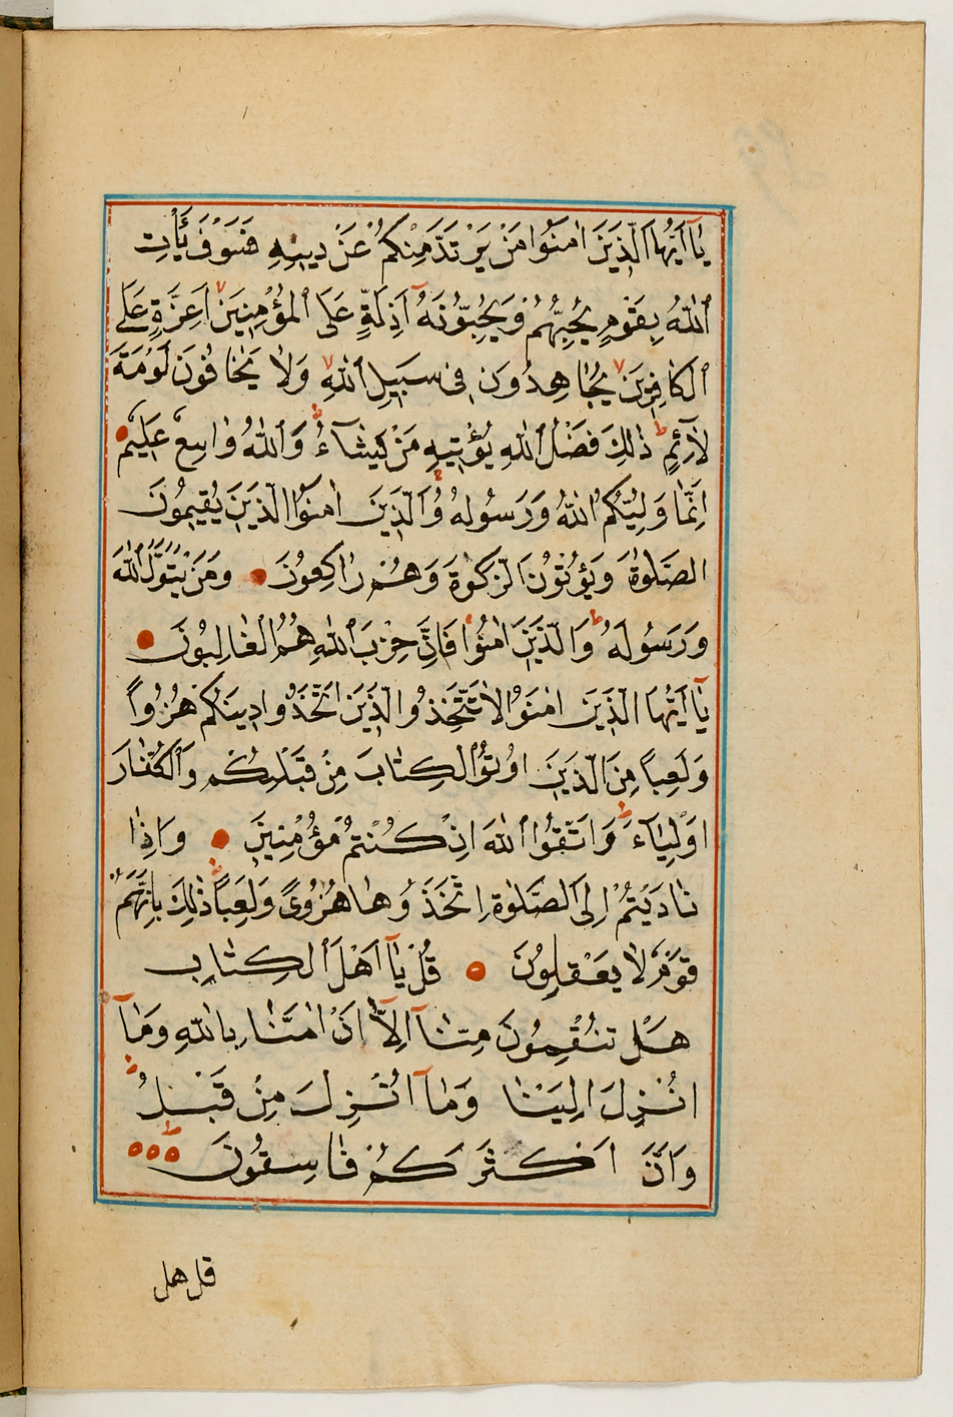 يَا اَيُّهَا الَّذِينَ اٰمَنُوا مَنْ يَرْتَدَّ مِنْكُمْ عَنْ دِينِهِ فَسَوْفَ يَأْتِ
اللّٰهُ بِقَوْمٍ يُحِبُّهُمْ وَيُحِبُّونَهُ اَذِلَّةٍ عَلَى الْمُؤْمِنِينَ اَعِزَّةٍ عَلَى
الْكَافِرِينَ يُجَاهِدُونَ فِي سَبِيلِ اللّٰهِ وَلَا يَخَافُونَ لَوْمَةَ
لَآئِمٍ ذٰلِكَ فَضْلُ اللّٰهِ يُؤْتِيهِ مَنْ يَشَآءُ وَاللّٰهُ وَاسِعٌ عَلِيمٌ
اِنَّمَا وَلِيُّكُمُ اللّٰهُ وَرَسُولُهُ وَالَّذِينَ اٰمَنُوا الَّذِينَ يُقِيمُونَ
الصَّلٰوةَ وَيُؤْتُونَ الزَّكٰوةَ وَهُمْ رَاكِعُونَ وَمَنْ يَتَوَلَّ اللّٰهَ
وَرَسُولَهُ وَالَّذِينَ اٰمَنُوا فَاِنَّ حِزْبَ اللّٰهِ هُمُ الْغَالِبُونَ
يَآ اَيُّهَا الَّذِينَ اٰمَنُوا لَا تَتَّخِذُوا الَّذِينَ اتَّخَذُوا دِينَكُمْ هُزُوًا
وَلَعِبًا مِنَ الَّذِينَ اُوتُوا الْكِتَابَ مِنْ قَبْلِكُمْ وَالْكُفَّارَ
اَوْلِيَآءَ وَاتَّقُوا اللّٰهَ اِنْ كُنْتُمْ مُؤْمِنِينَ وَاِذَا
نَادَيْتُمْ اِلَى الصَّلٰوةِ اتَّخَذُوهَا هُزُوًا وَلَعِبًا ذٰلِكَ بِاَنَّهُمْ
قَوْمٌ لَا يَعْقِلُونَ قُلْ يَآ اَهْلَ الْكِتَابِ
هَلْ تَنْقِمُونَ مِنَّآ اِلَّآ اَنْ اٰمَنَّا بِاللّٰهِ وَمَآ
اُنْزِلَ اِلَيْنَا وَمَآ اُنْزِلَ مِنْ قَبْلُ
وَاَنَّ اَكْثَرَكُمْ فَاسِقُونَ
قل هل